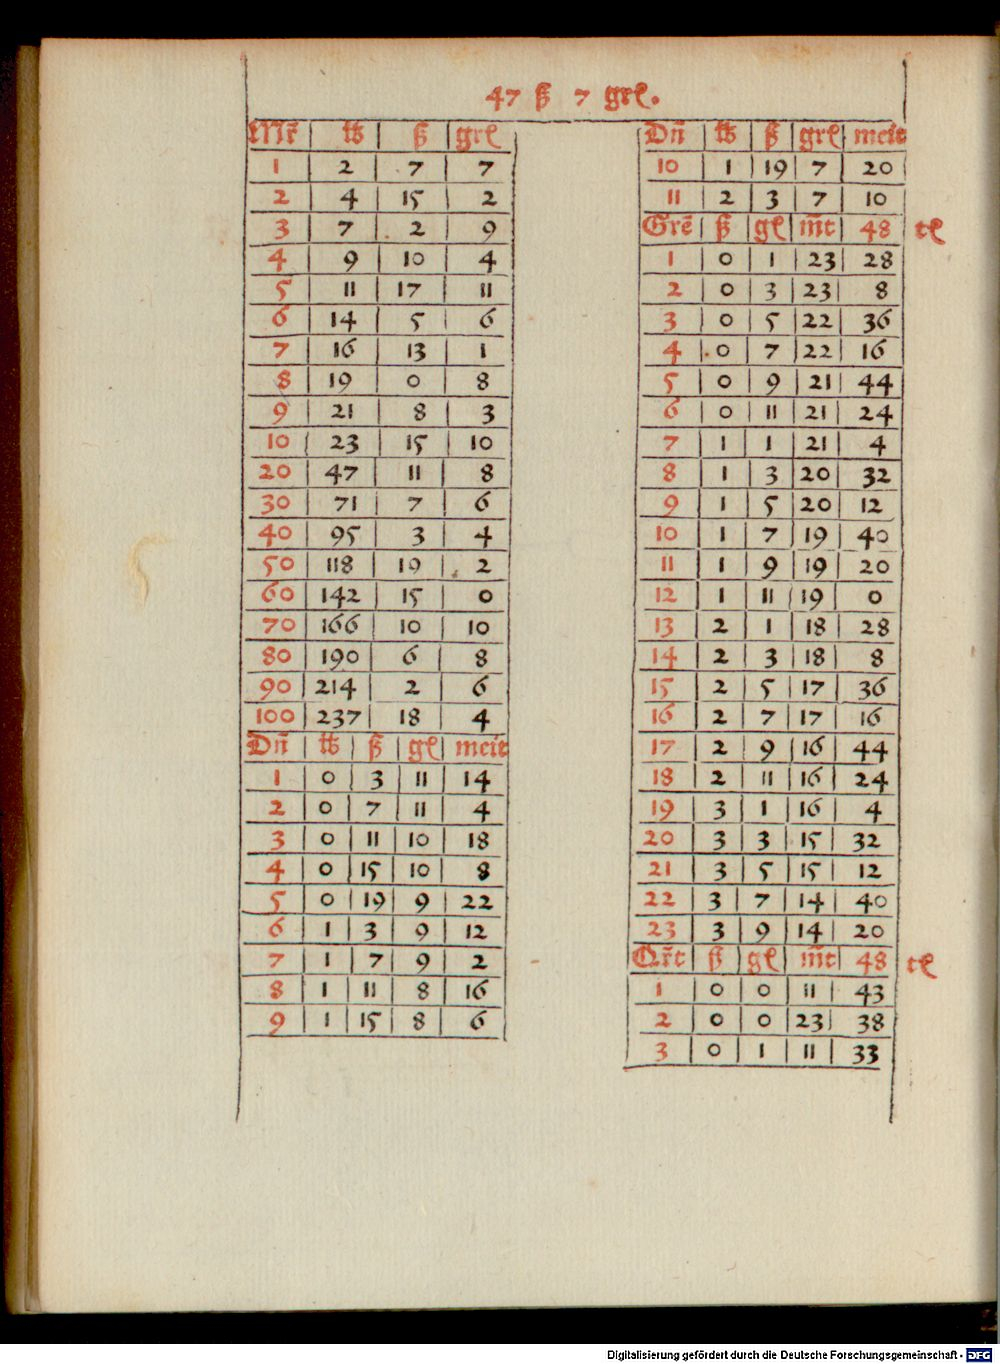 47 ß 7 grl.
Mr̃ | lb | ß | grl
1 | 2 | 7 | 7
2 | 4 | 15 | 2
3 | 7 | 2 | 9
4 | 9 | 10 | 4
5 | 11 | 17 | 11
6 | 14 | 5 | 6
7 | 16 | 13 | 1
8 | 19 | 0 | 8
9 | 21 | 8 | 3
10 | 23 | 15 | 10
20 | 47 | 11 | 8
30 | 71 | 7 | 6
40 | 95 | 3 | 4
50 | 118 | 19 | 2
60 | 142 | 15 | 0
70 | 166 | 10 | 10
80 | 190 | 6 | 8
90 | 214 | 2 | 6
100 | 237 | 18 | 4
Dñ | lb | ß | gl | meit
1 | 0 | 3 | 11 | 14
2 | 0 | 7 | 11 | 4
3 | 0 | 11 | 10 | 18
4 | 0 | 15 | 10 | 8
5 | 0 | 19 | 9 | 22
6 | 1 | 3 | 9 | 12
7 | 1 | 7 | 9 | 2
8 | 1 | 11 | 8 | 16
9 | 1 | 15 | 8 | 6
Dñ | lb | ß | grl | meit
10 | 1 | 19 | 7 | 20
11 | 2 | 3 | 7 | 10
Grẽ | ß | gl | m̃t | 48 tl
1 | 0 | 1 | 23 | 28
2 | 0 | 3 | 23 | 8
3 | 0 | 5 | 22 | 36
4 | 0 | 7 | 22 | 16
5 | 0 | 9 | 21 | 44
6 | 0 | 11 | 21 | 24
7 | 1 | 1 | 21 | 4
8 | 1 | 3 | 20 | 32
9 | 1 | 5 | 20 | 12
10 | 1 | 7 | 19 | 40
11 | 1 | 9 | 19 | 20
12 | 1 | 11 | 19 | 0
13 | 2 | 1 | 18 | 28
14 | 2 | 3 | 18 | 8
15 | 2 | 5 | 17 | 36
16 | 2 | 7 | 17 | 16
17 | 2 | 9 | 16 | 44
18 | 2 | 11 | 16 | 24
19 | 3 | 1 | 16 | 4
20 | 3 | 3 | 15 | 32
21 | 3 | 5 | 15 | 12
22 | 3 | 7 | 14 | 40
23 | 3 | 9 | 14 | 20
Qr̃t | ß | gl | m̃t | 48 tl
1 | 0 | 0 | 11 | 43
2 | 0 | 0 | 23 | 38
3 | 0 | 1 | 11 | 33
Digitalisierung gefördert durch die Deutsche Forschungsgemeinschaft - DFG